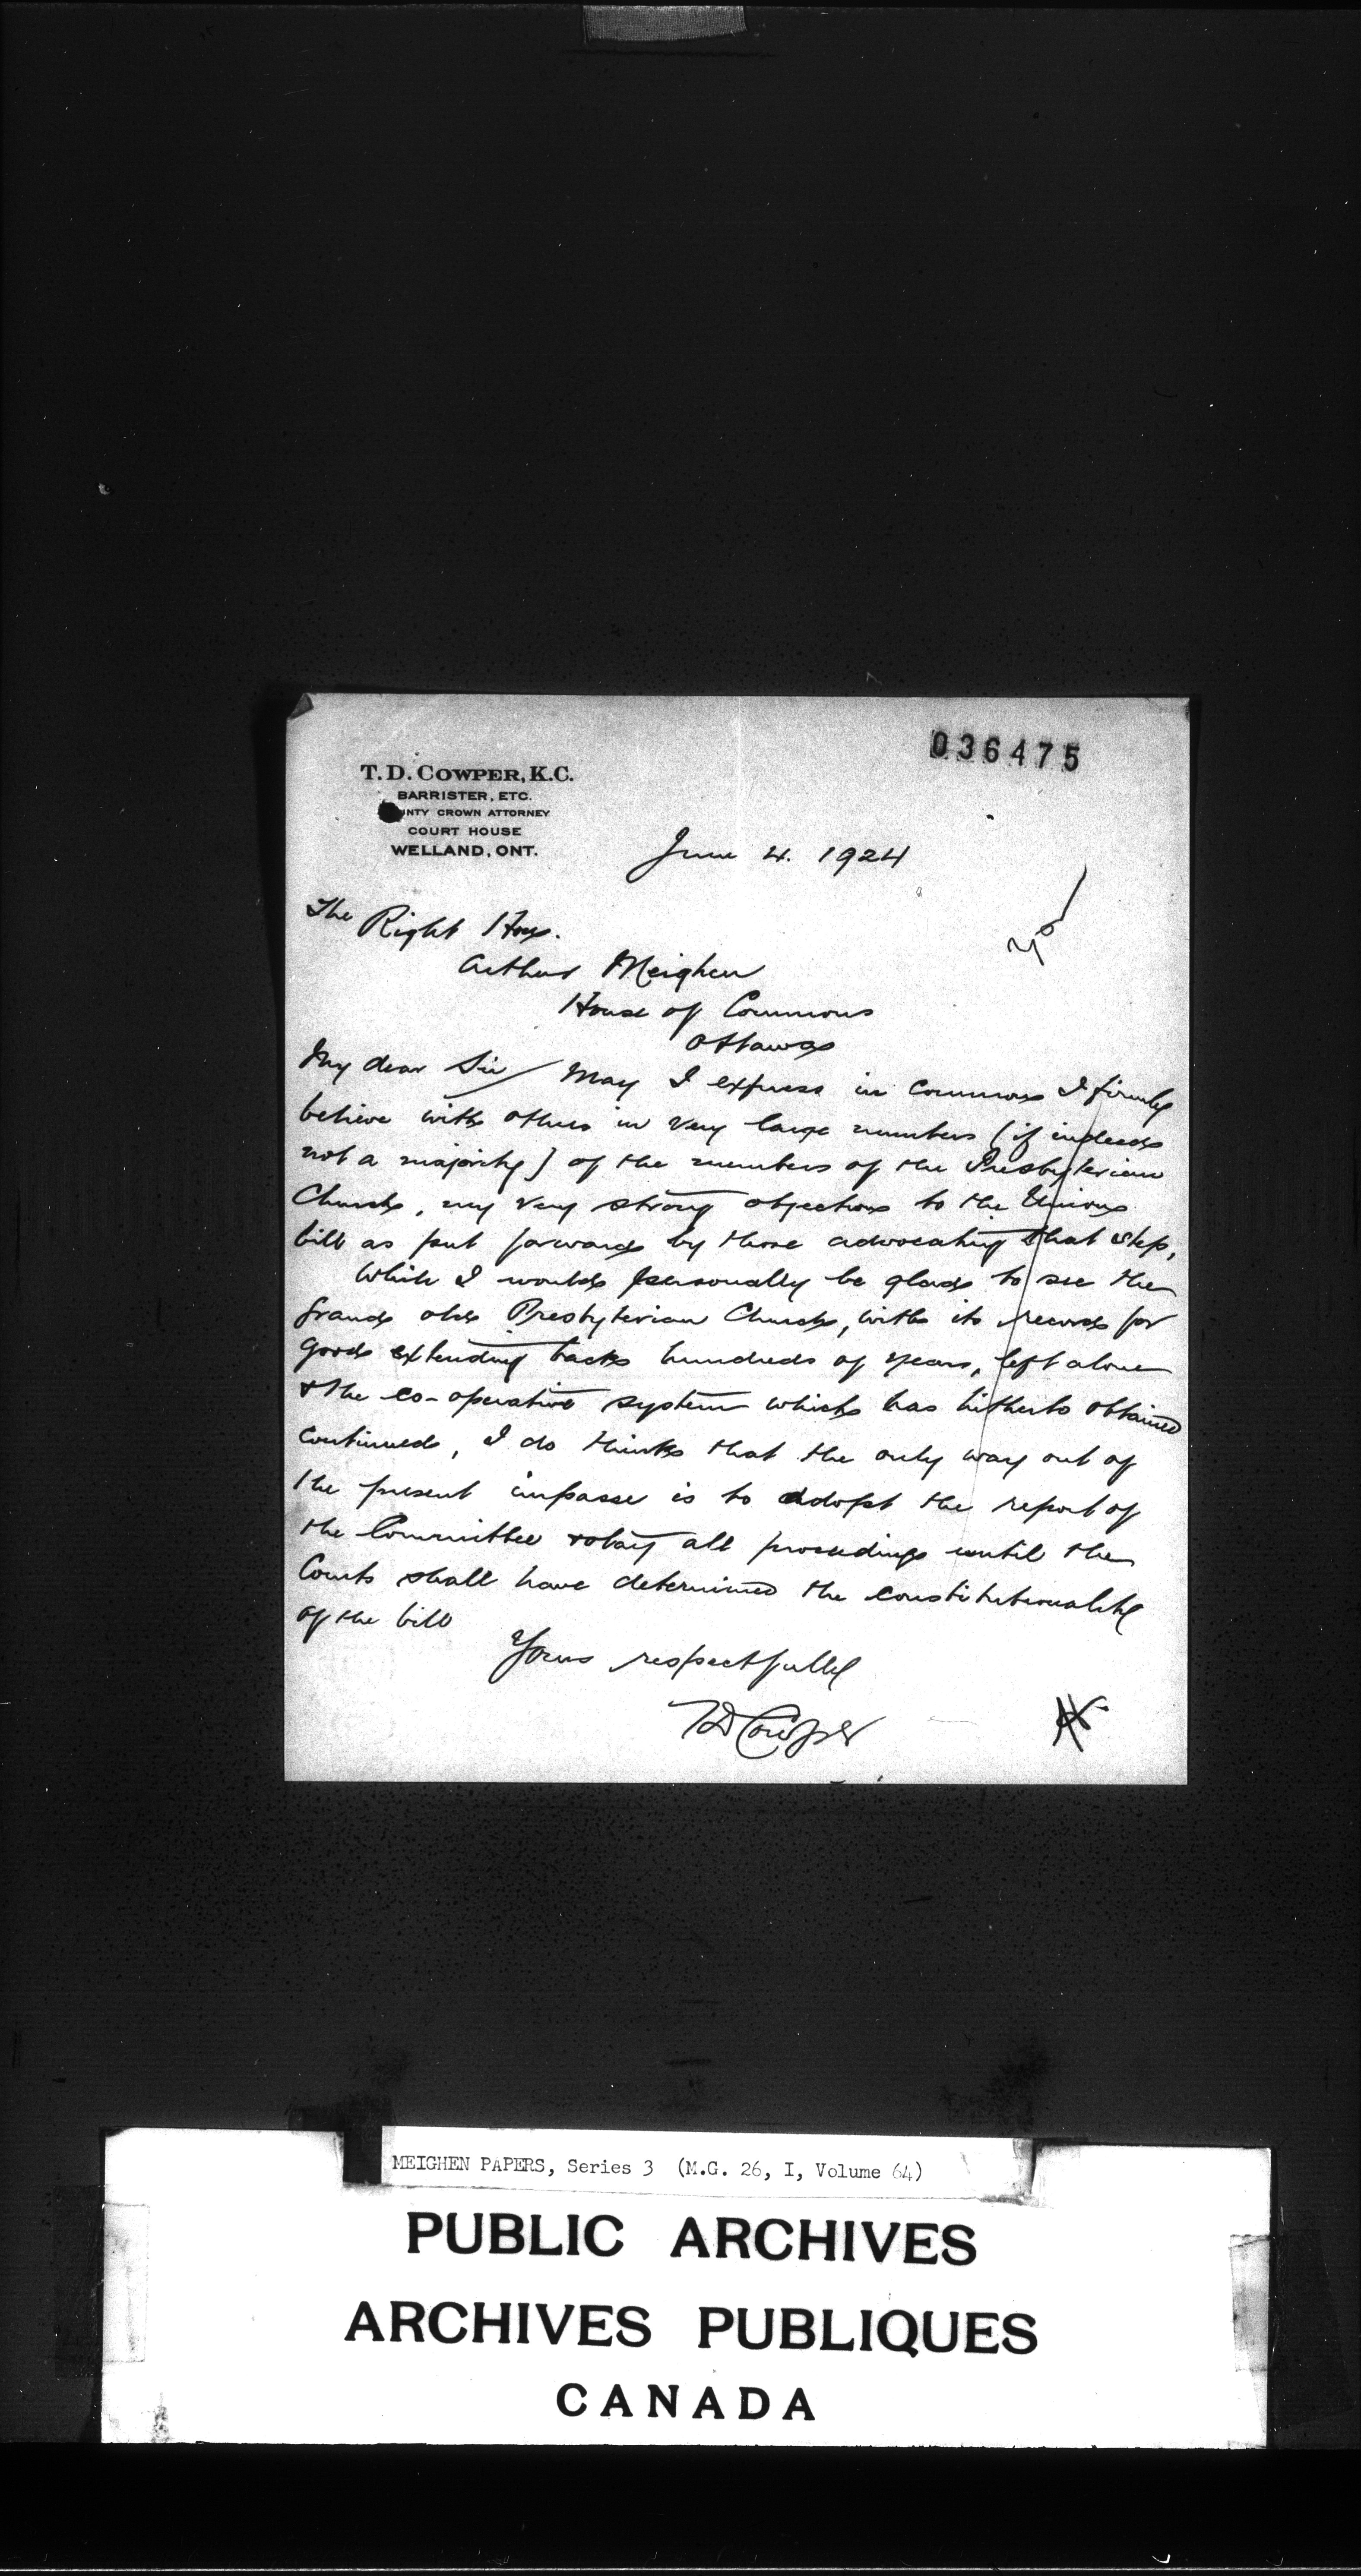 036475
T. D. COWPER, K.C.
BARRISTER, ETC.
UNTY CROWN ATTORNEY
COURT HOUSE
WELLAND, ONT.
June 4. 1924
The Right Hon.
Arthur Meighen
House of Commons
Ottawa
My dear Sir / May I express in common I firmly
believe with others in very large numbers (if indeed
not a majority) of the members of the Presbyterian
Church, my very strong objections to the Union
bill as put forward by those advocating that step,
While I would personally be glad to see the
grand old Presbyterian Church, with its record for
good extending back hundreds of years, left alone
& the co-operative system which has hitherto obtained
continued, I do think that the only way out of
the present impasse is to adopt the report of
the Committee & stay all proceedings until the
Courts shall have determined the constitutionality
of the bill
Yours respectfully
TD Cowper
MEIGHEN PAPERS, Series 3 (M.G. 26, I, Volume 64)
PUBLIC ARCHIVES
ARCHIVES PUBLIQUES
CANADA